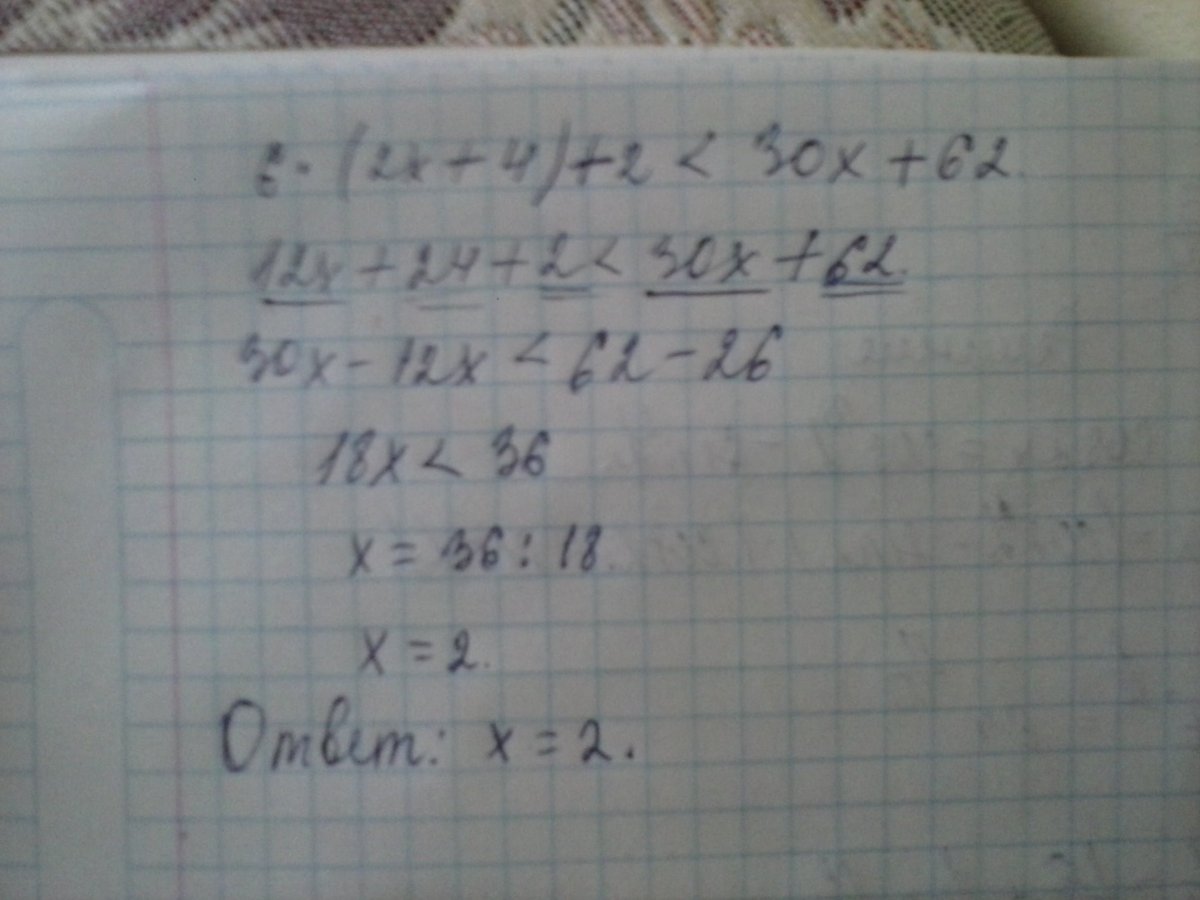 6 · (2x + 4) + 2 < 30x + 62.
12x + 24 + 2 < 30x + 62.
30x - 12x < 62 - 26
18x < 36
x = 36 : 18.
x = 2.
Ответ: x = 2.